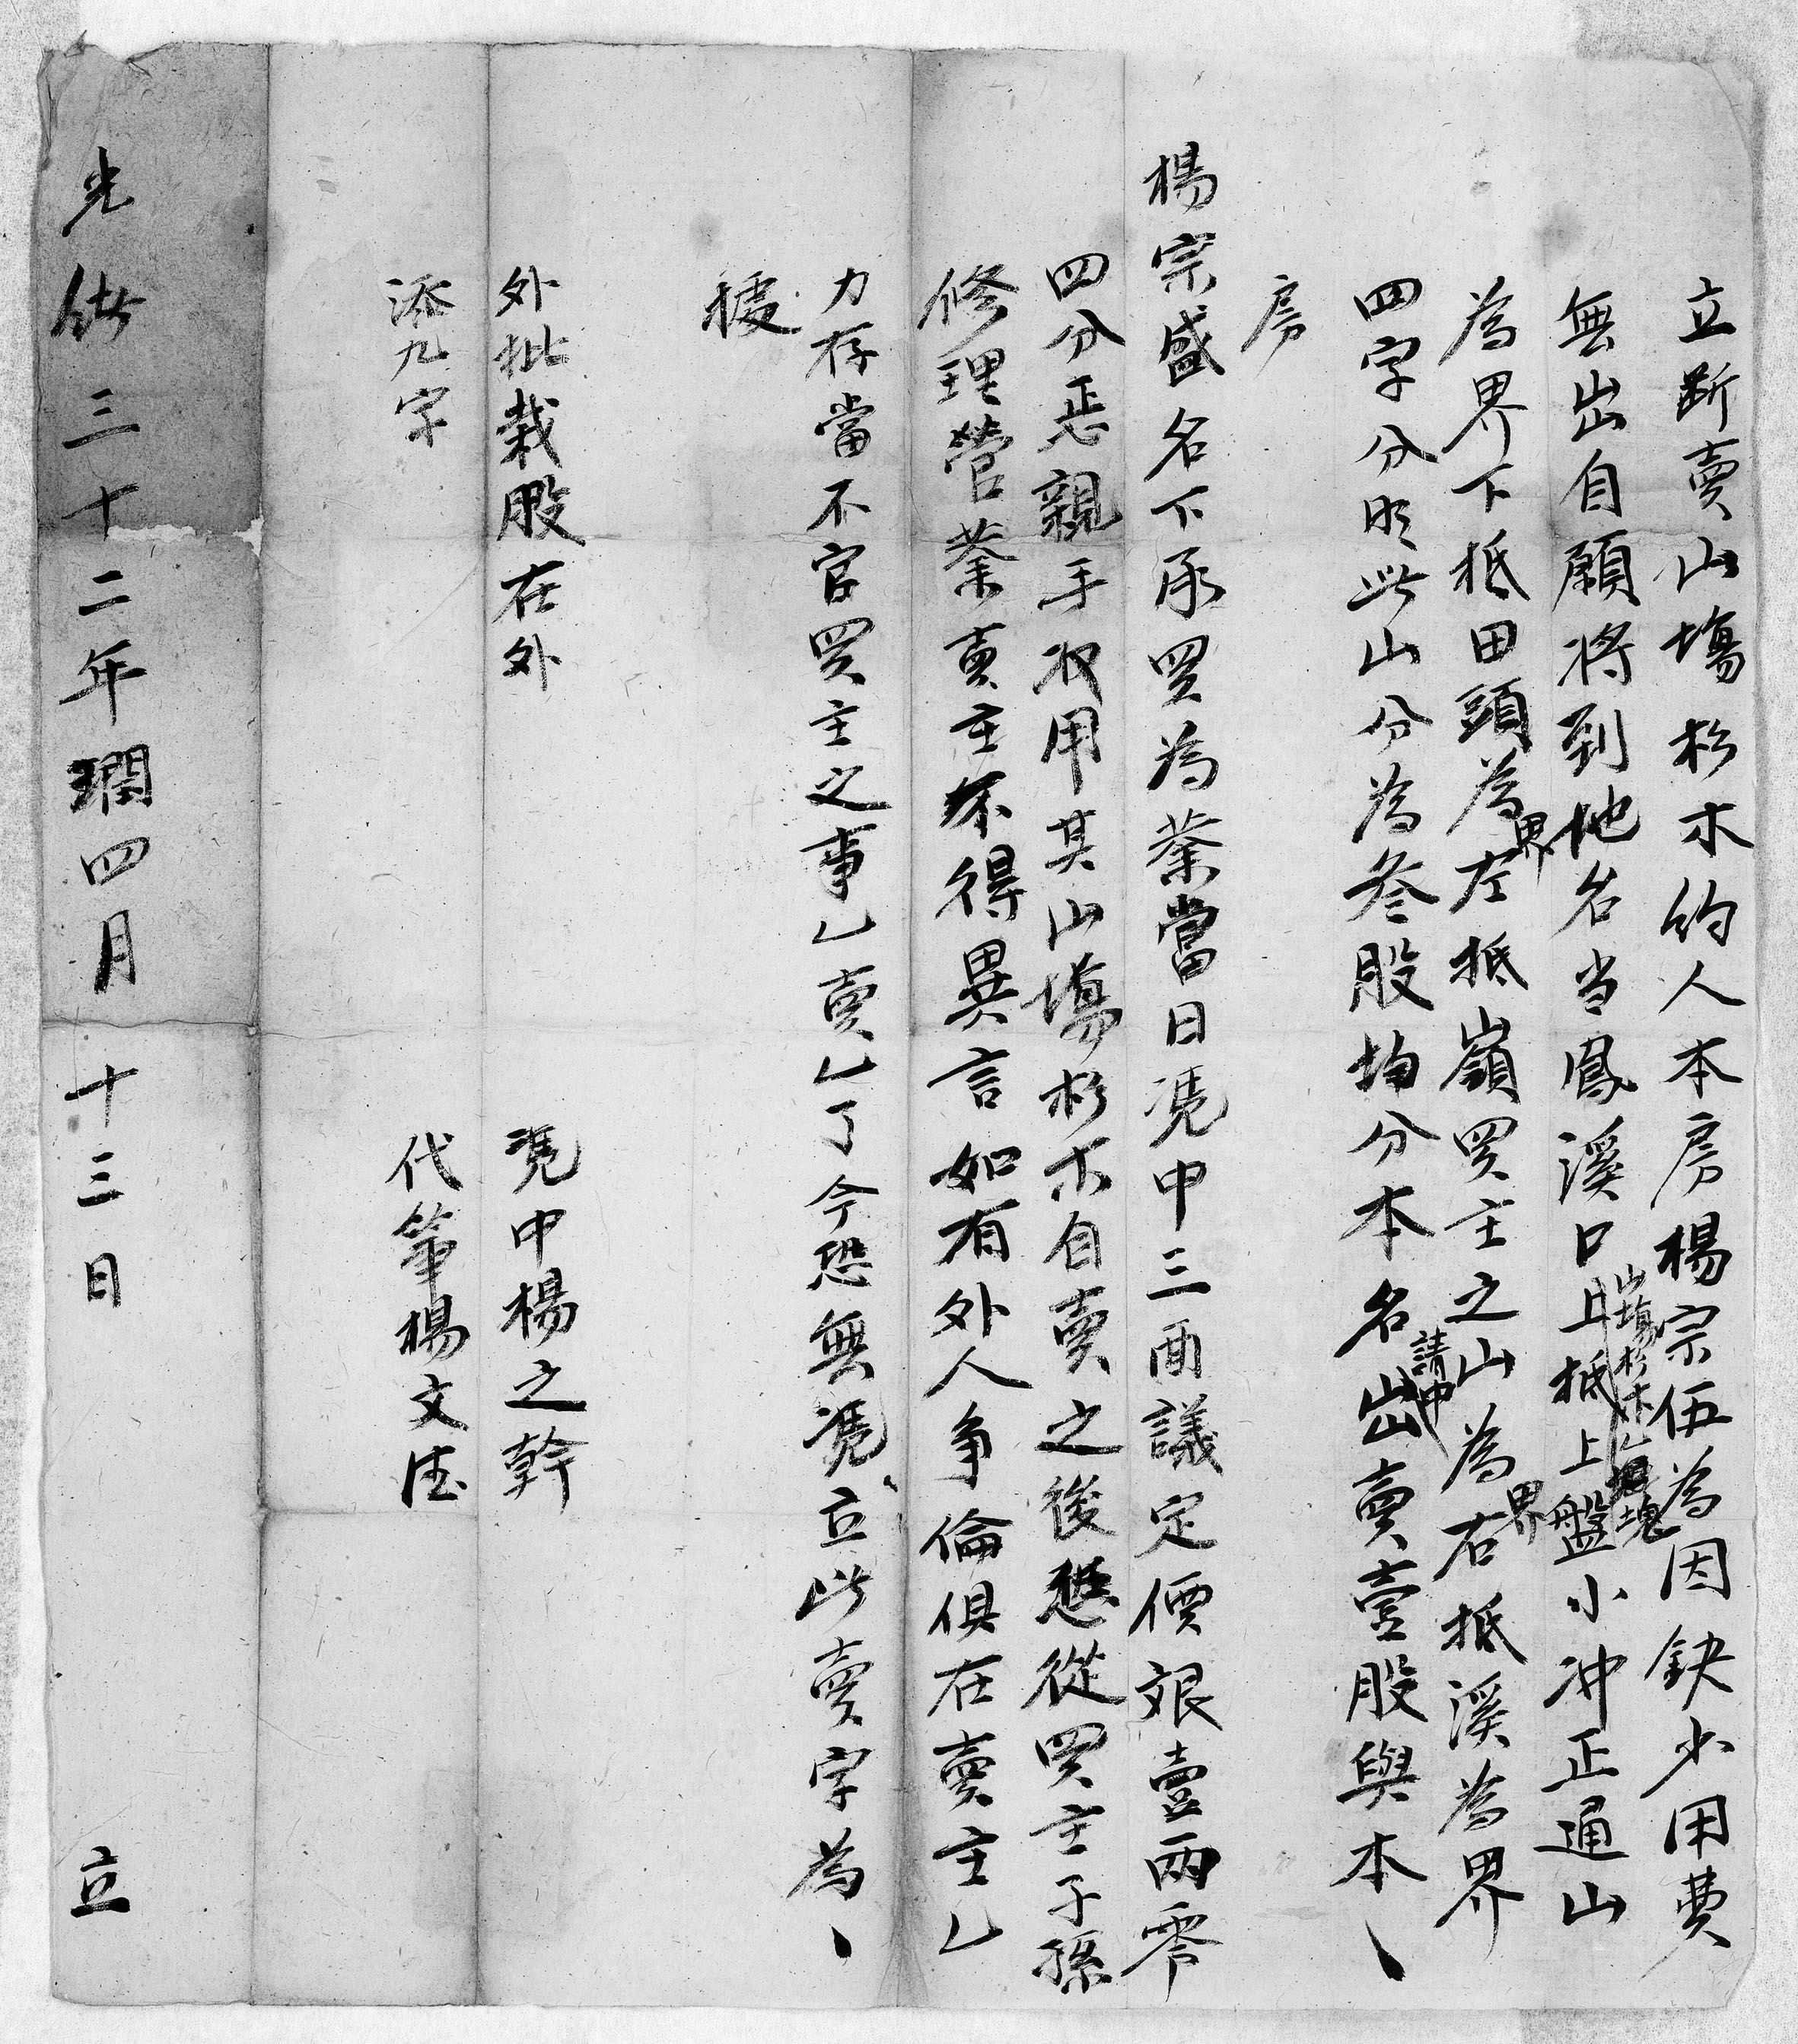 立断賣山塲杉木約人本房楊宗伍為因缺少用費
無出自願將到地名当鳳溪口山塲杉木一塊上抵上盤小冲正通山
為界下抵田頭為界左抵嶺買主之山為界右抵溪為界
四字分明此山分為叁股均分本名請中出賣壹股與本
房
楊宗盛名下承買為業當日憑中三面議定價艮壹兩零
四分恁親手收用其山塲杉木自賣之後恁從買主子孫
修理營業賣主不得異言如有外人争倫俱在賣主乚
力存當不官買主之事乚賣乚了今恐無憑立此賣字為
據
外批栽股在外
憑中楊之幹
添九字
代筆楊文法
光緒三十二年瞤四月十三日立